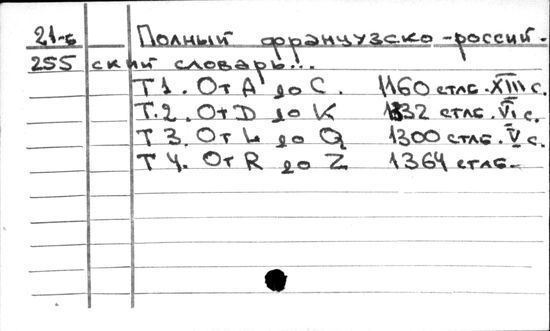 21-б Полный французско-россий-
255 ский словарь!..
Т 1. От А до С. 1160 стлб. XIII с.
Т. 2. От D до К 1332 стлб. VI с.
Т 3. От L до Q 1300 стлб. V с.
Т 4. От R до Z 1364 стлб.